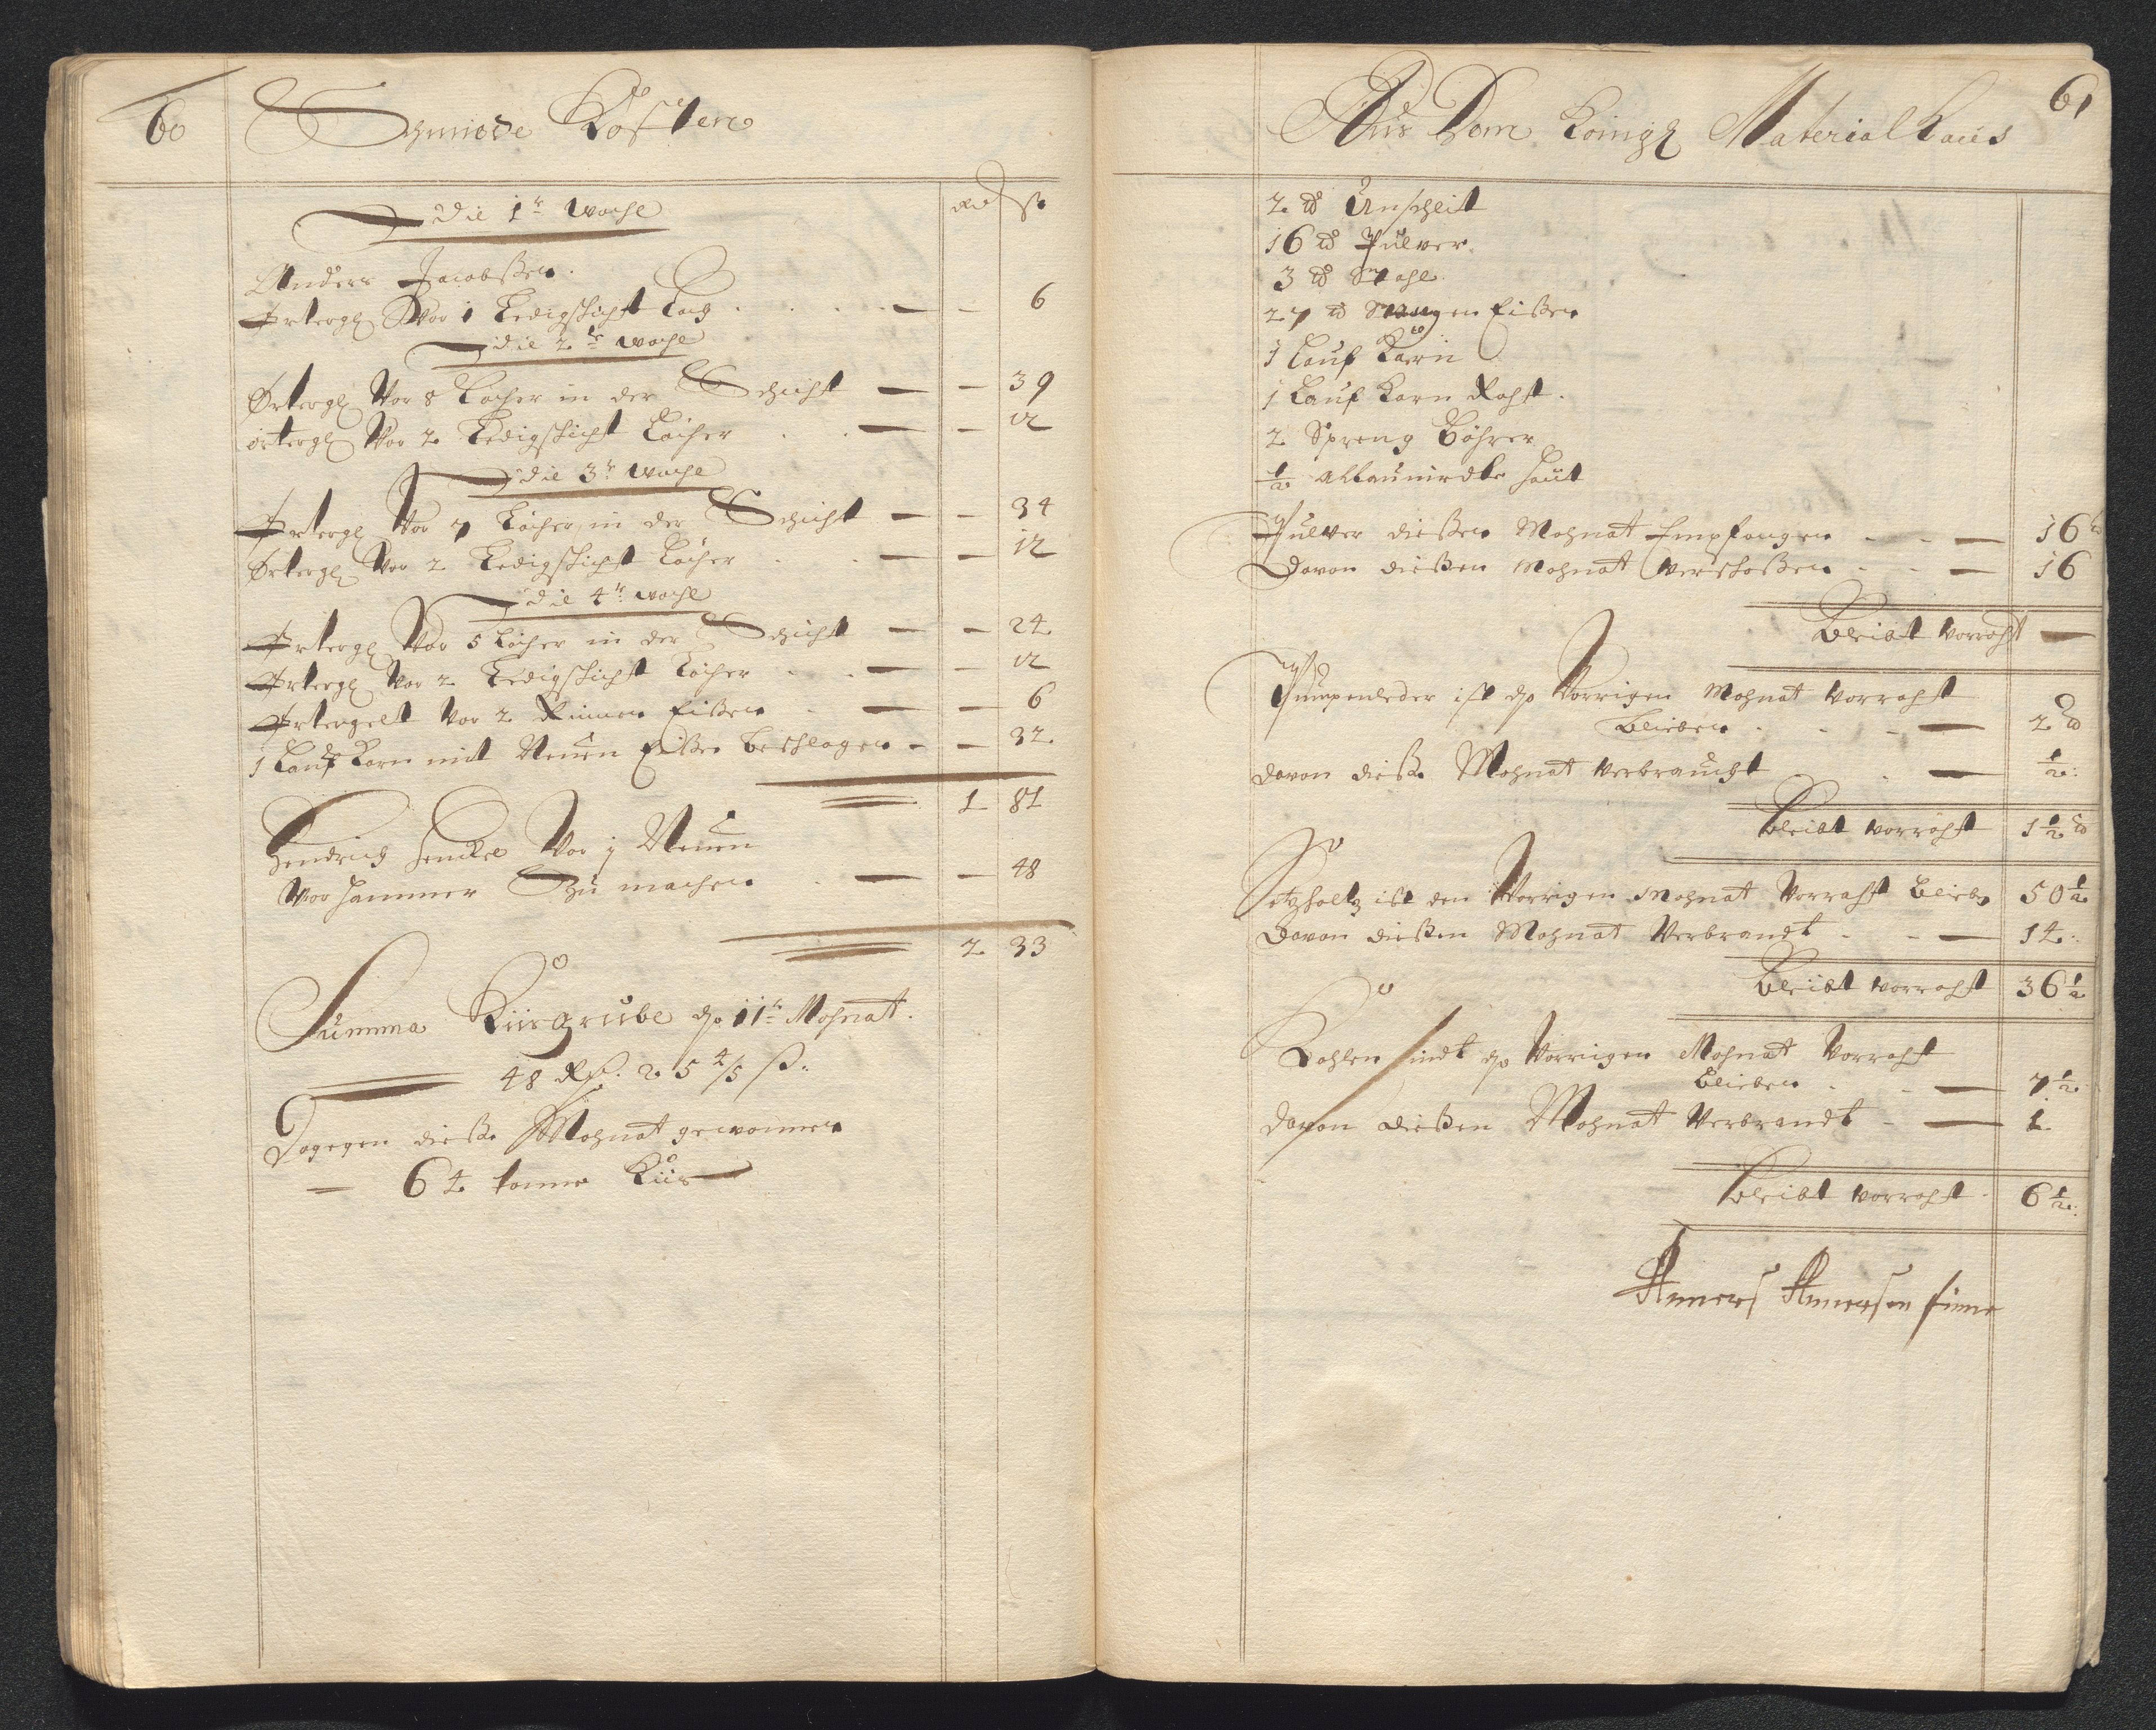 60
Schmiede Kosten
Rd ß
Die 1te woche
Anders Jacobßen
Örtergl Vor 1 Ledigschicht Loch — — 6
die 2te woche
Örtergl Vor 8 Löcher in der Schicht — — 39
örtergl Vor 2 Ledigschicht Löcher — — 12
die 3te woche
Örtergl Vor 7 Löcher in der Schicht — — 34
Örtergl Vor 2 Ledigschicht Löcher — — 12
die 4te woche
Örtergl Vor 5 Löcher in der Schicht — — 24
Örtergl Vor 2 Ledigschicht Löcher — — 12
Örtergelt Vor 2 Rinnen Eißen — — 6
1 Lauf Karn mit Neuen Eißen beschlagen — — 32
1 81
Hendrich Henckel Vor 1 Neuen
Vorhammer Zu machen — — 48
2 33
Summa Kiisgrube dß 11te Mohnat.
48 Rß. 25 4/5 ß.
Dagegen dieße Mohnat gewonnen
— 64 tonne Kiis —
61
Aus Dem Köingl Material haus
2 ℔ Unscheit
16 ℔ Pulver
3 ℔ Stahl
27 ℔ Stangen Eißen
1 Lauf Karn
1 Lauf Karn Raht.
2 Spreng Böhrer
1/2 allaunirdte haut
Pulver dießen Mohnat Empfangen — 16 ℔
Davon dießen Mohnat Verschoßen — 16
Bleibt Vorraht —
Pumpenleder ist dß Vorrigen Mohnat Vorraht
blieben — 2 ℔
davon dieße Mohnat Verbraucht — 1/2
Bleibt vorraht 1 1/2 ℔
Setzholtz ist den Vorrigen Mohnat Vorraht blieben 50 1/2
Davon dießen Mohnat Verbrandt — 14
Bleibt vorraht 36 1/2
Kohlen sindt dß Vorrigen Mohnat Vorraht
blieben — 7 1/2
davon dießen Mohnat Verbrandt — 1
Bleibt vorraht 6 1/2
Anners Annersen finne